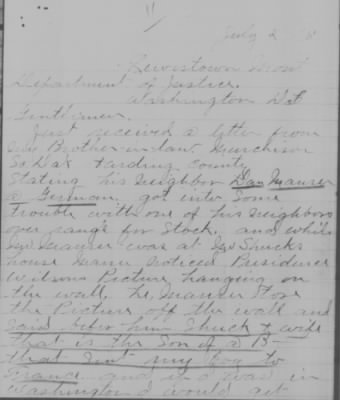 11
July 2
Lewistown Mont
Department of Justice.
Washington D.C.
Gentlemen.
Just received a letter from
my Brother-in-law Murchison
So Dak Harding County
Stating his Neighbor Dan Maurer
a German. got into Some
trouble with one of his neighbors
over range for Stock. and while
Maurer was at Shucks
house Maurer Noticed Presidence
Wilsons Picture hanging on
the wall. he, Maurer tore
the Picture off the wall and
said before him Shuck & wife
that is the Son of a B-
that Sent my Boy to
France and if I was in
Washington I would get